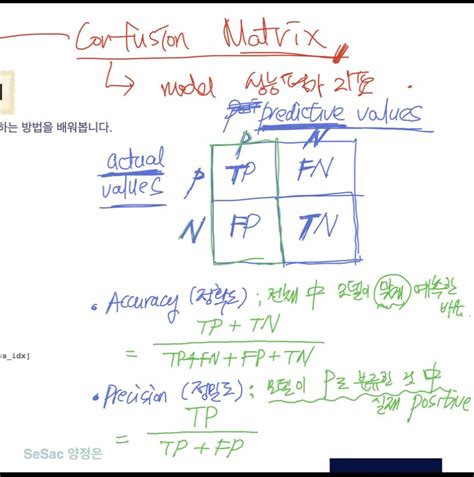 Confusion Matrix
↳ model 성능평가 지표.
하는 방법을 배워봅니다.
predictive values
P N
actual values
P TP FN
N FP TN
• Accuracy (정확도) ; 전체 中 모델이 맞게 예측한 비율.
= TP + TN / TP+FN+FP+TN
=s_idx]
• Precision (정밀도) ; 모델이 P로 분류한 것 中 실제 positive
= TP / TP + FP
SeSac 양정은